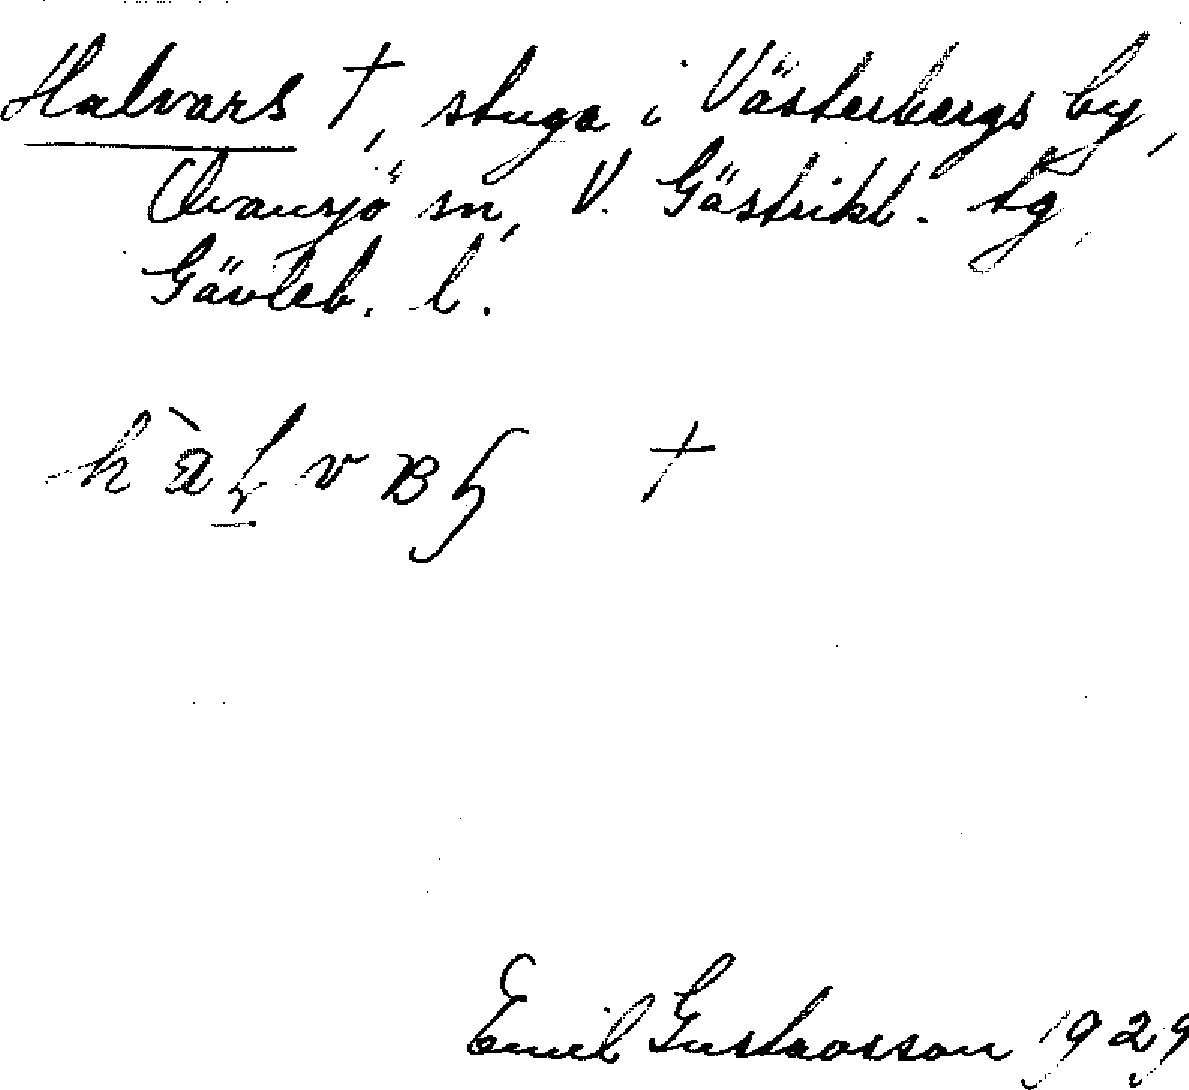 Halvars †, stuga i Västerbergs by,
Ovansjö sn, V. Gästrikl. tg,
Gävleb. l.
†
Emil Gustavsson 1929